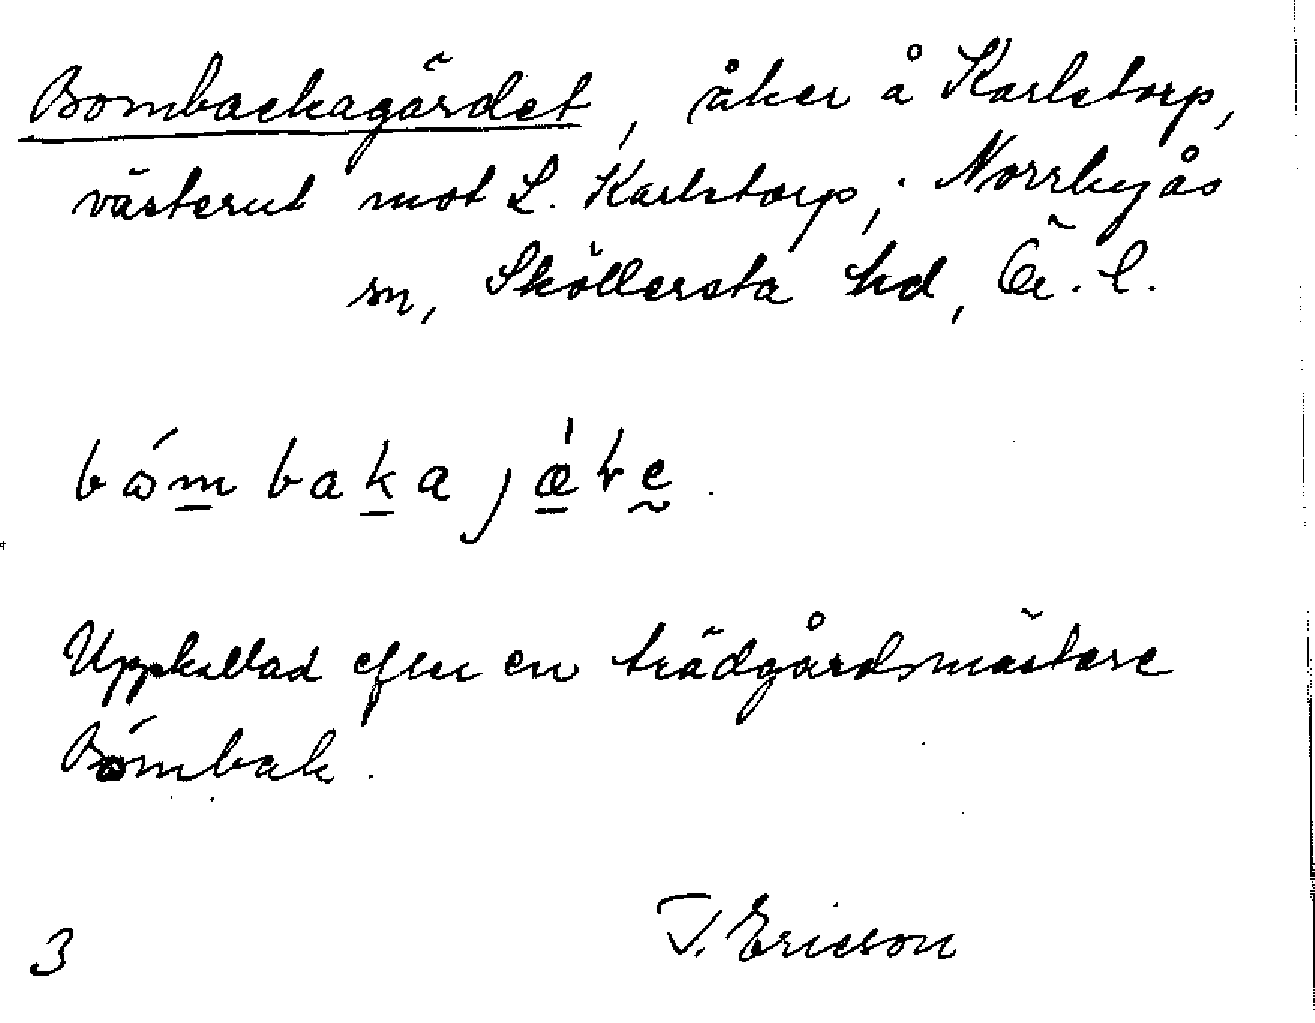 Bombackagärdet, åker å Karlstorp,
västerut mot L. Karlstorp, Norrbyås
sn, Sköllersta hd, Ö. l.
bómbakajǽṭe.
Uppkallad efter en trädgårdsmästare
Bómbak.
3 T. Ericson